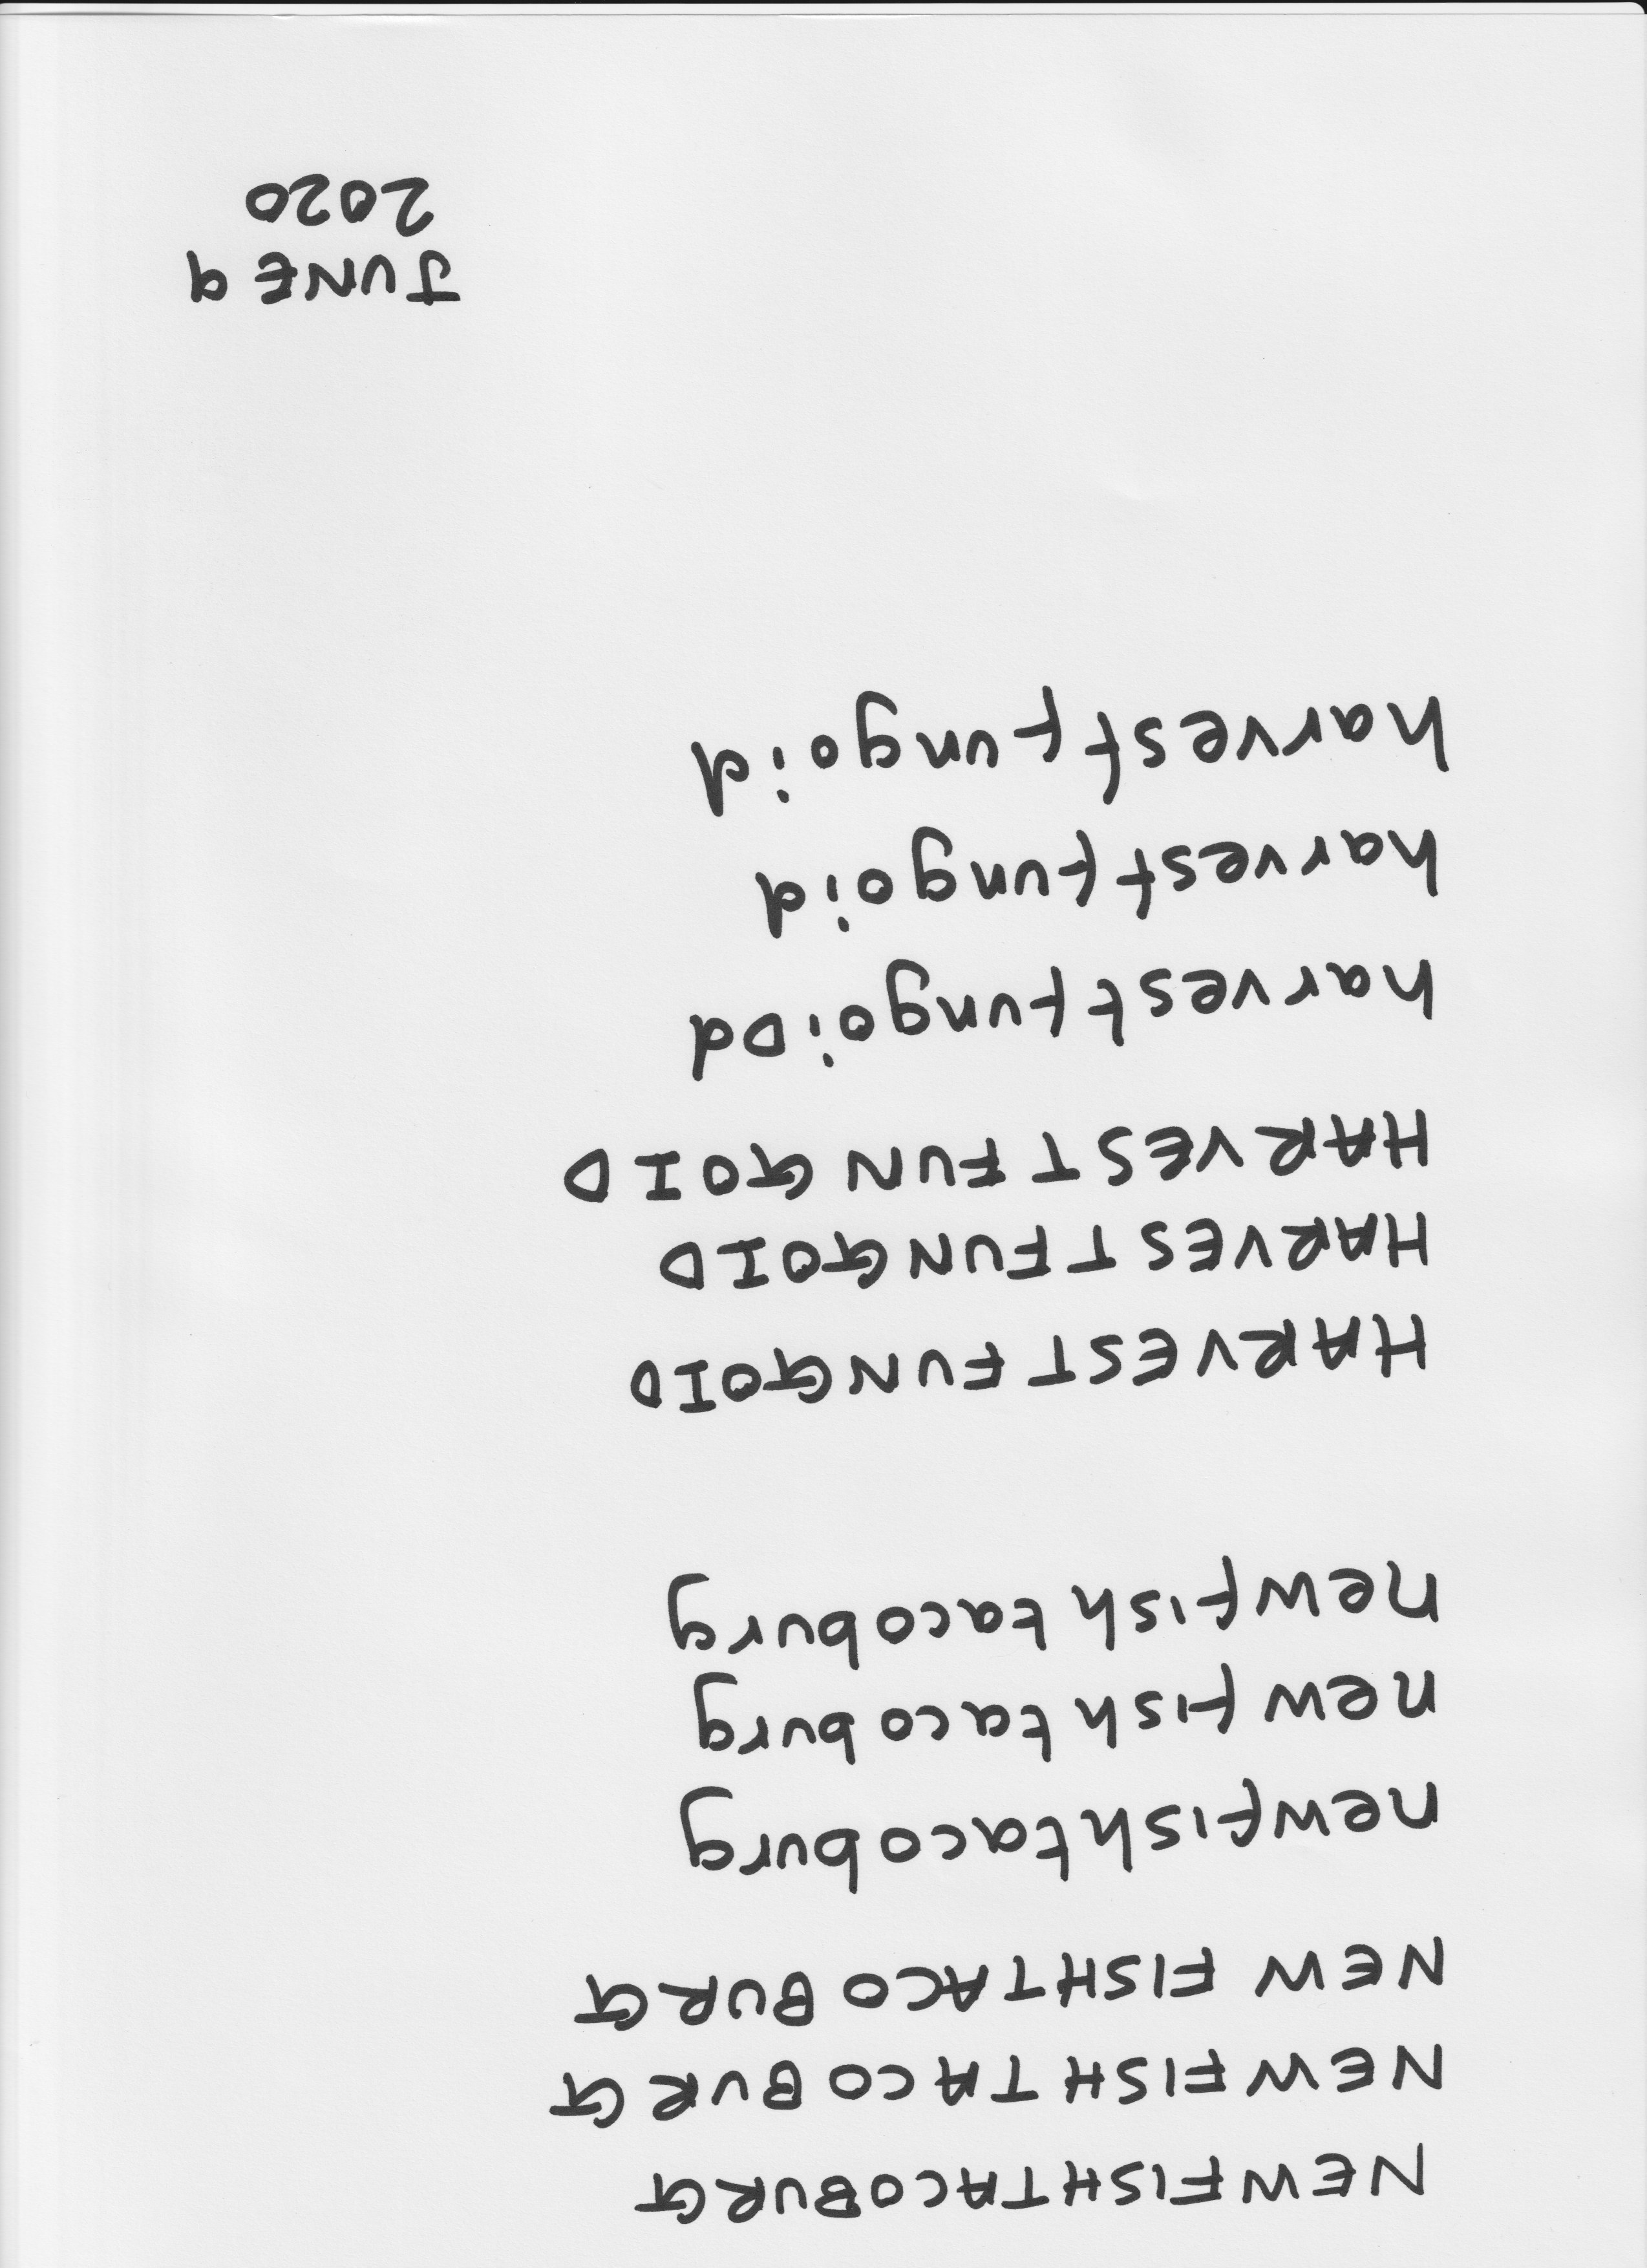 NEWFISHTACOBURG
NEWFISH TACO BURG
NEW FISHTACO BURG
newfishtacoburg
new fish taco burg
newfish tacoburg
HARVEST FUNGOID
HARVEST FUNGOID
HARVEST FUN GOID
harvestfungoiDd
harvestfungoid
harvestfungoid
JUNE 9
2020